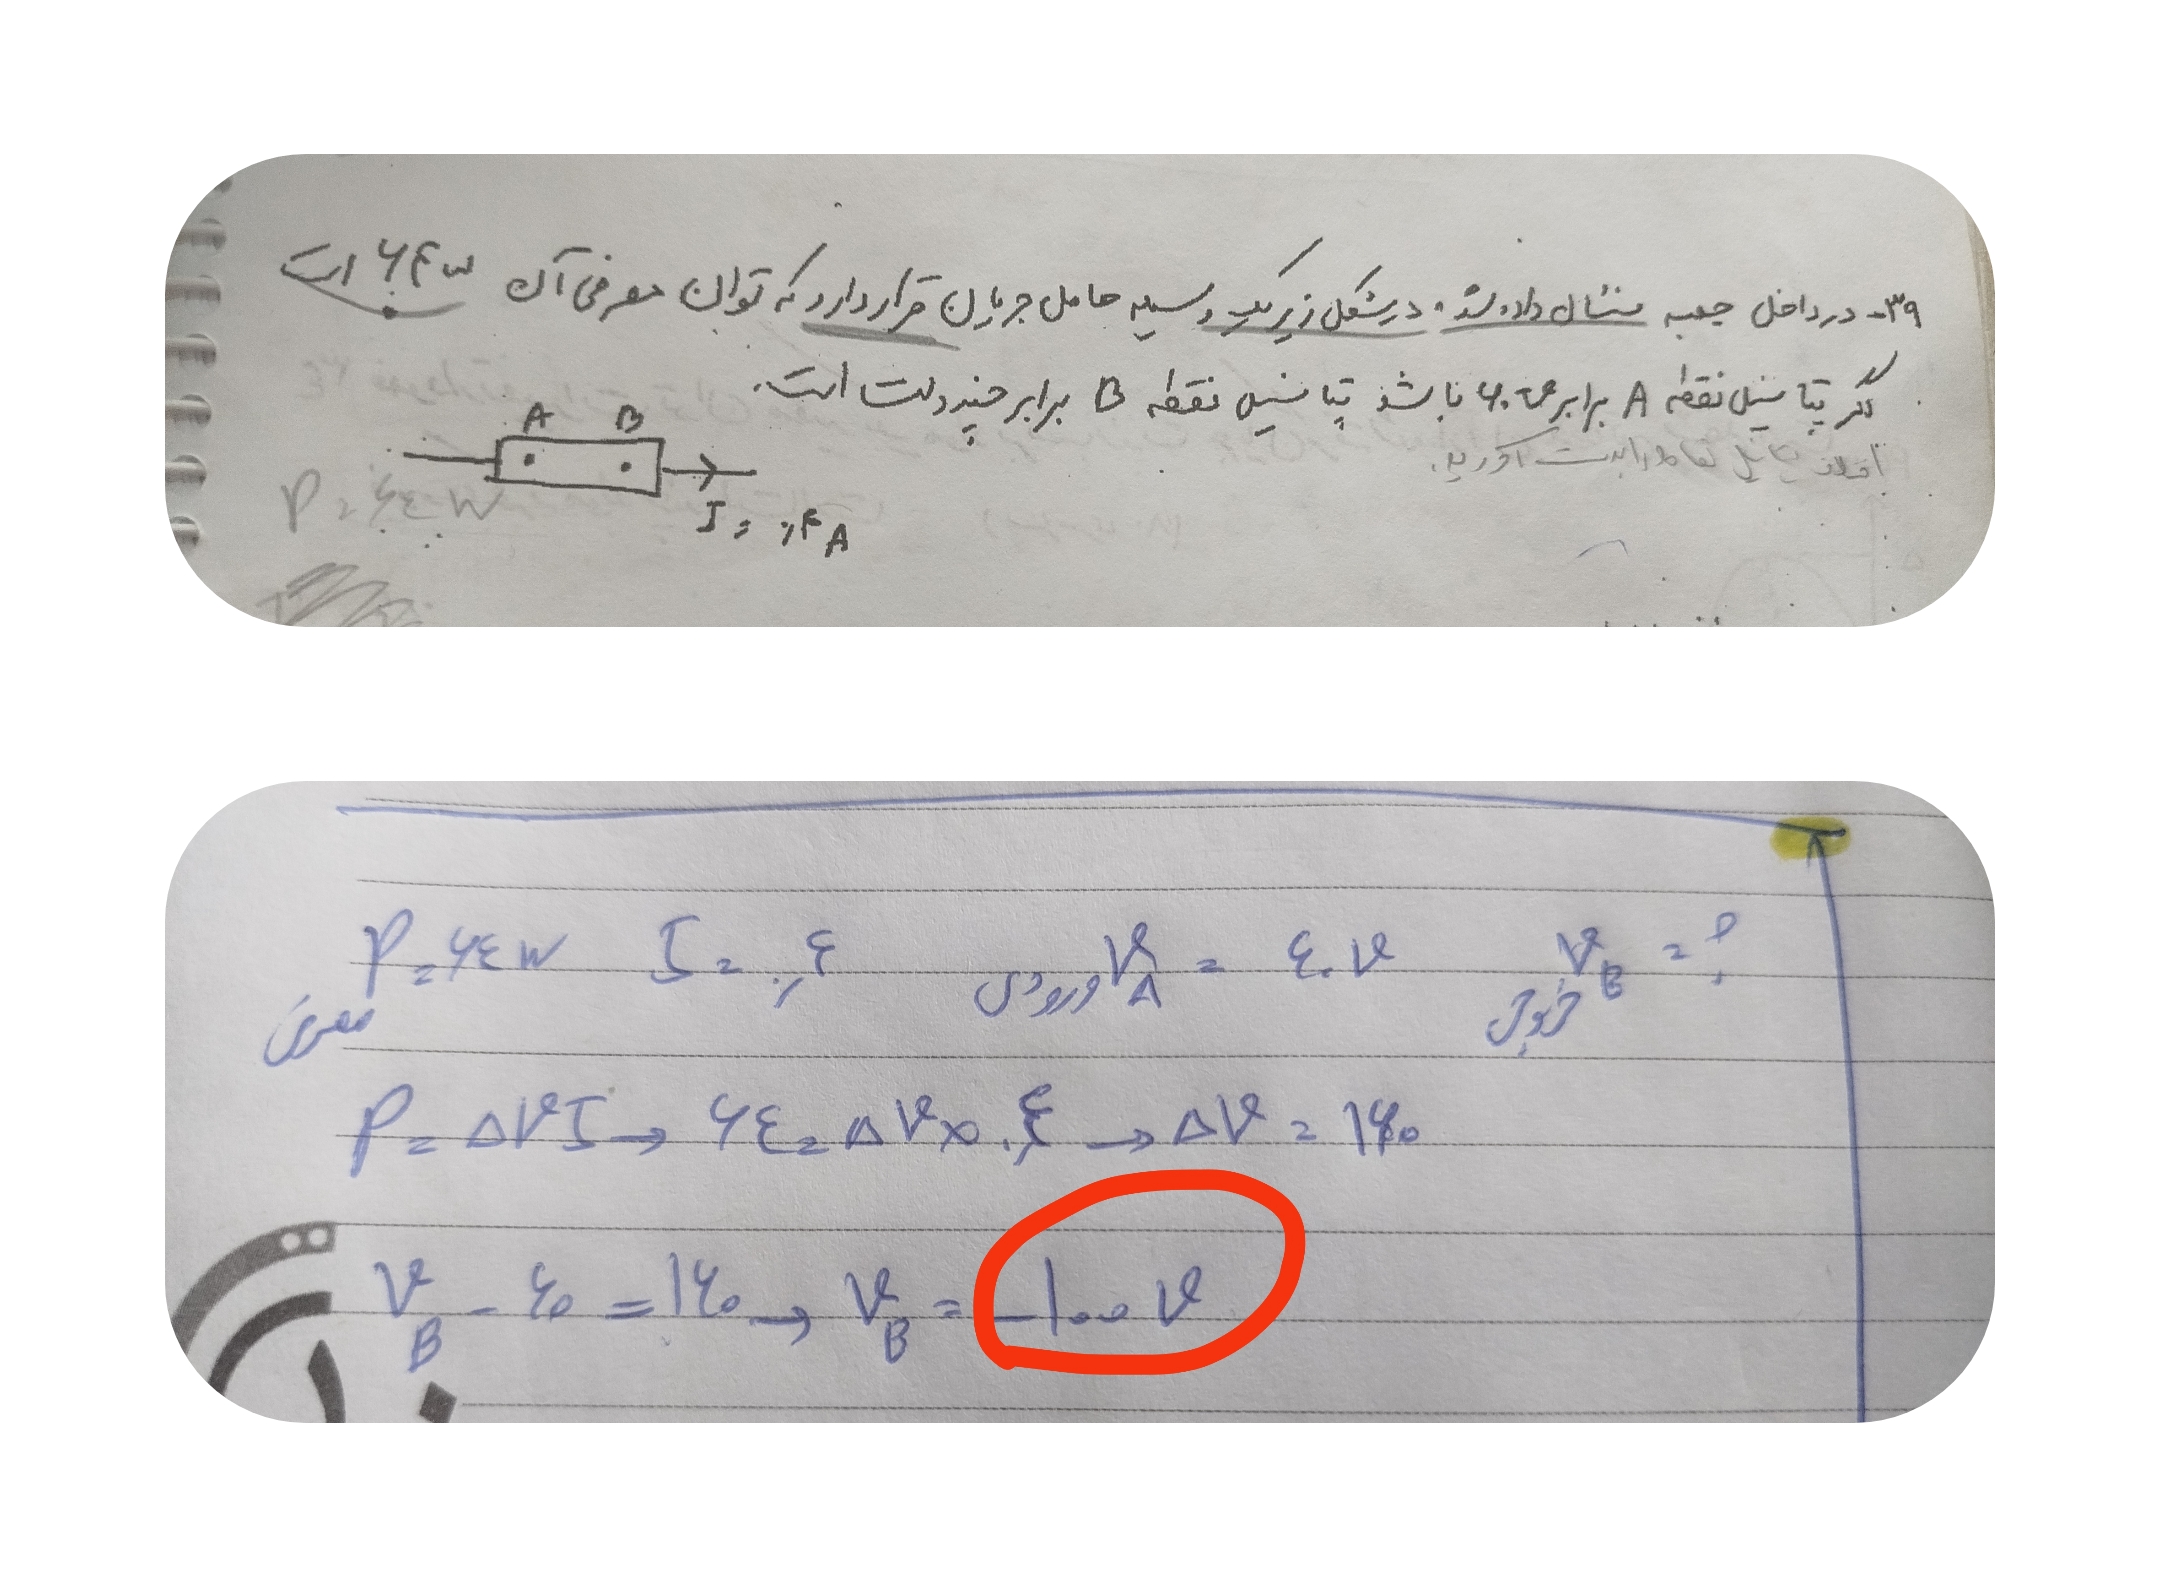 ۳۹- در داخل جعبه نشان داده شده در شکل زیر یک وسیله حامل جریان قرار دارد که توان مصرفی آن ۶۴w است
اگر پتانسیل نقطه A برابر ۶۰v باشد پتانسیل نقطه B برابر چند ولت است.
اختلاف پتانسیل نقاط را بدست آورید.
A B
I = ۰/۴ A
P = ۶۴ W
P = ۶۴ W I = ۰/۴ V A = ۶۰ V V B = ؟
مصرفی ورودی خروجی
P = ΔVI → ۶۴ = ΔV × ۰/۴ → ΔV = ۱۶۰
V B - ۶۰ = ۱۶۰ → V B = -۱۰۰ V